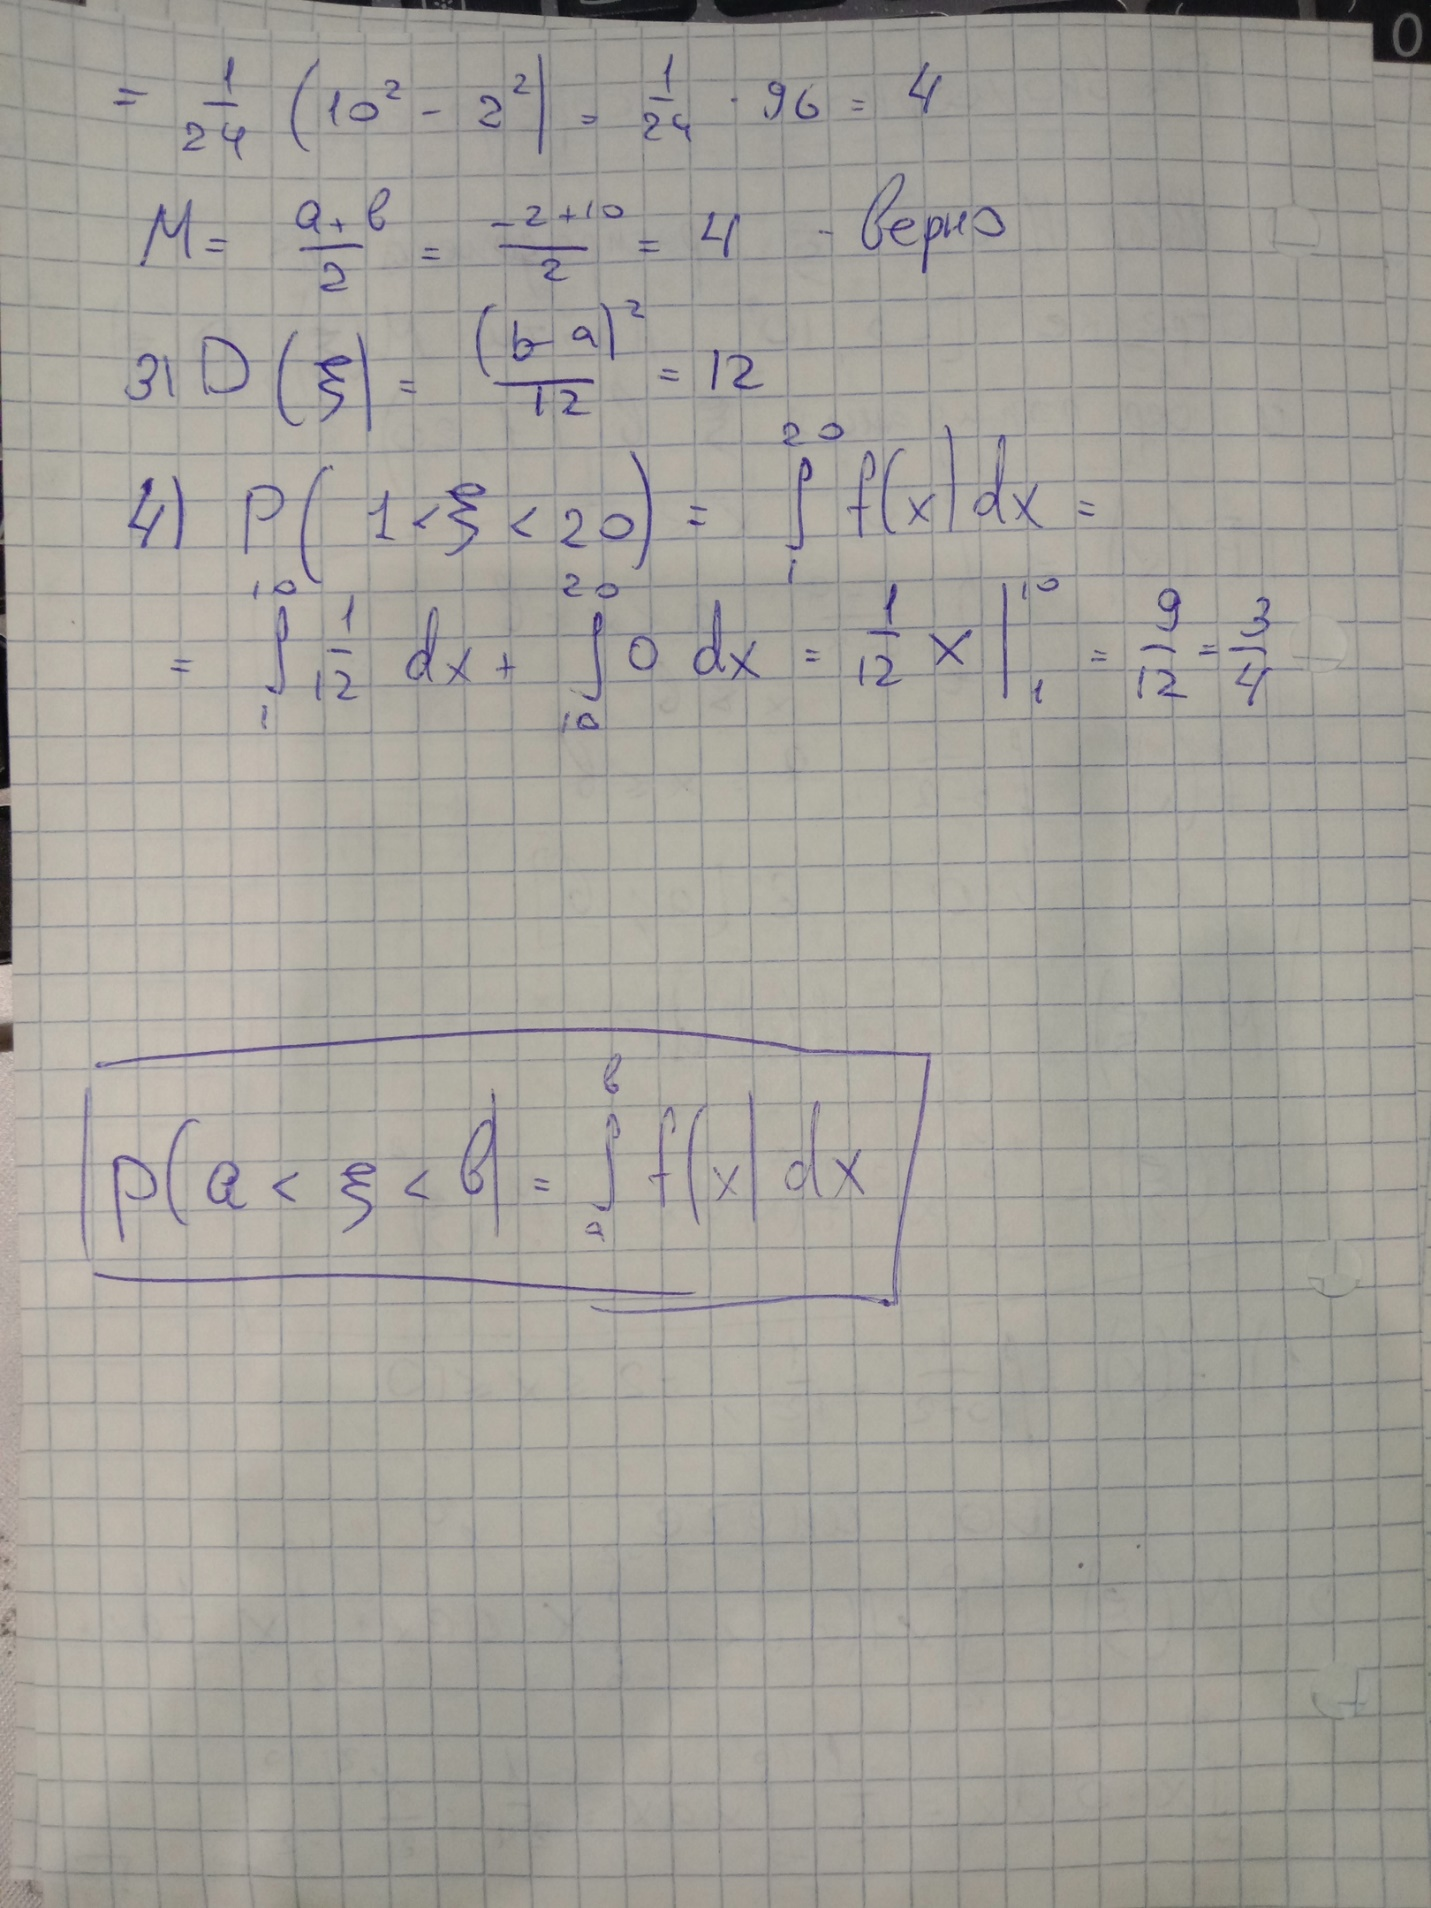 = 1/24 (10² - 2²) = 1/24 · 96 = 4
M = (a+b)/2 = (-2+10)/2 = 4 - верно
3) D(ξ) = (b-a)²/12 = 12
4) P(1<ξ<20) = ∫₁²⁰ f(x) dx =
= ∫₁¹⁰ 1/12 dx + ∫₁₀²⁰ 0 dx = 1/12 x |₁¹⁰ = 9/12 = 3/4
P(a < ξ < b) = ∫ₐᵇ f(x) dx
0